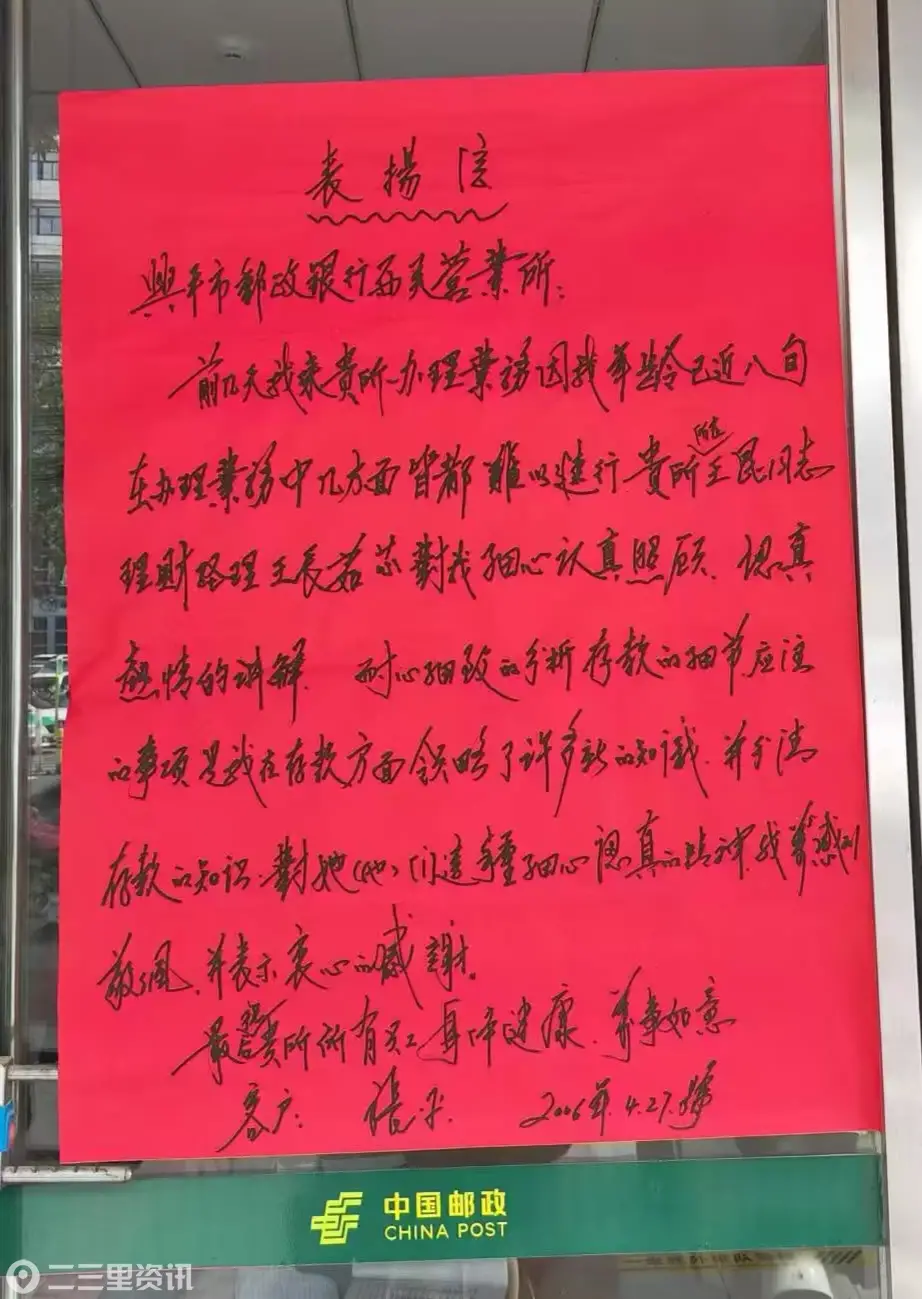 表揚信
興平市邮政银行西关营業所：
前几天我来貴所办理業務因我年龄已近八旬
在办理業務中几方面皆都難以進行貴所王民同志
所長
理財经理王長若芯對我细心认真照顾、認真
热情的讲解、耐心细致的分析存款的细节应注
的事項是我在存款方面领略了许多新的知識、并分清
存款的知识、對她(他)们这種细心認真的精神、我等感到
敬佩、并表示衷心的感謝。
最后祝貴所所有员工身体健康、萬事如意
客户：張平 2006年.4.27.號
中国邮政
CHINA POST
二三里资讯